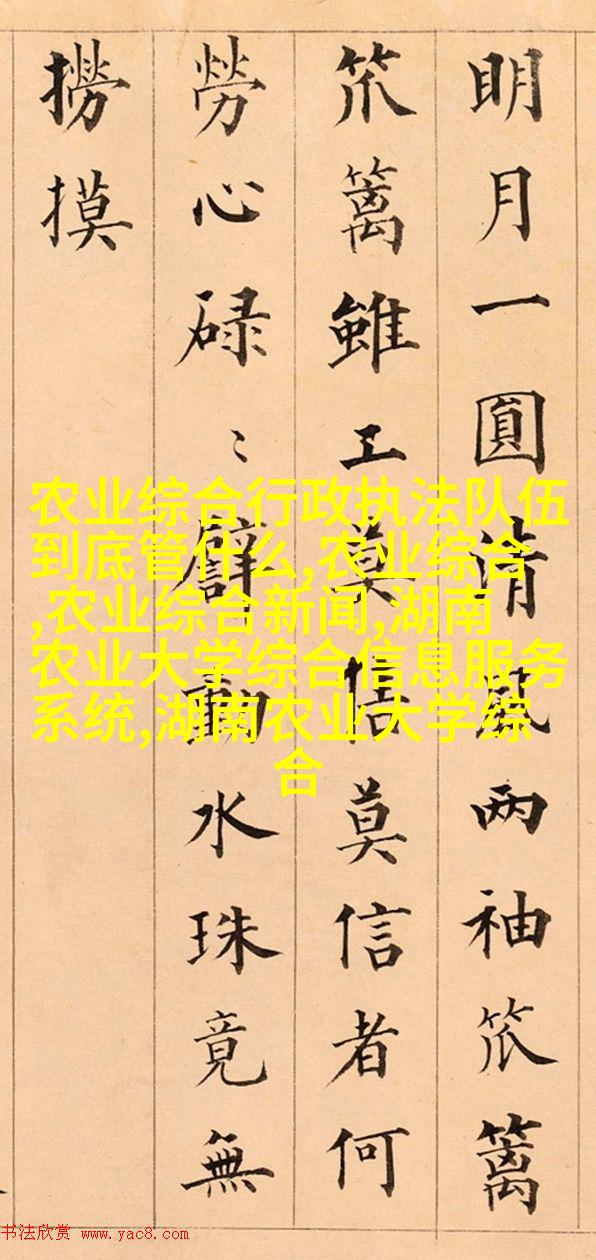 明月一圓清風两袖笊篱
笊篱雖工莫悟莫信者何
勞心碌〻礕動水珠竟無
撈摸
农业综合行政执法队伍
到底管什么,农业综合
,农业综合新闻,湖南
农业大学综合信息服务
系统,湖南农业大学综
合
书法欣赏 www.yac8.com